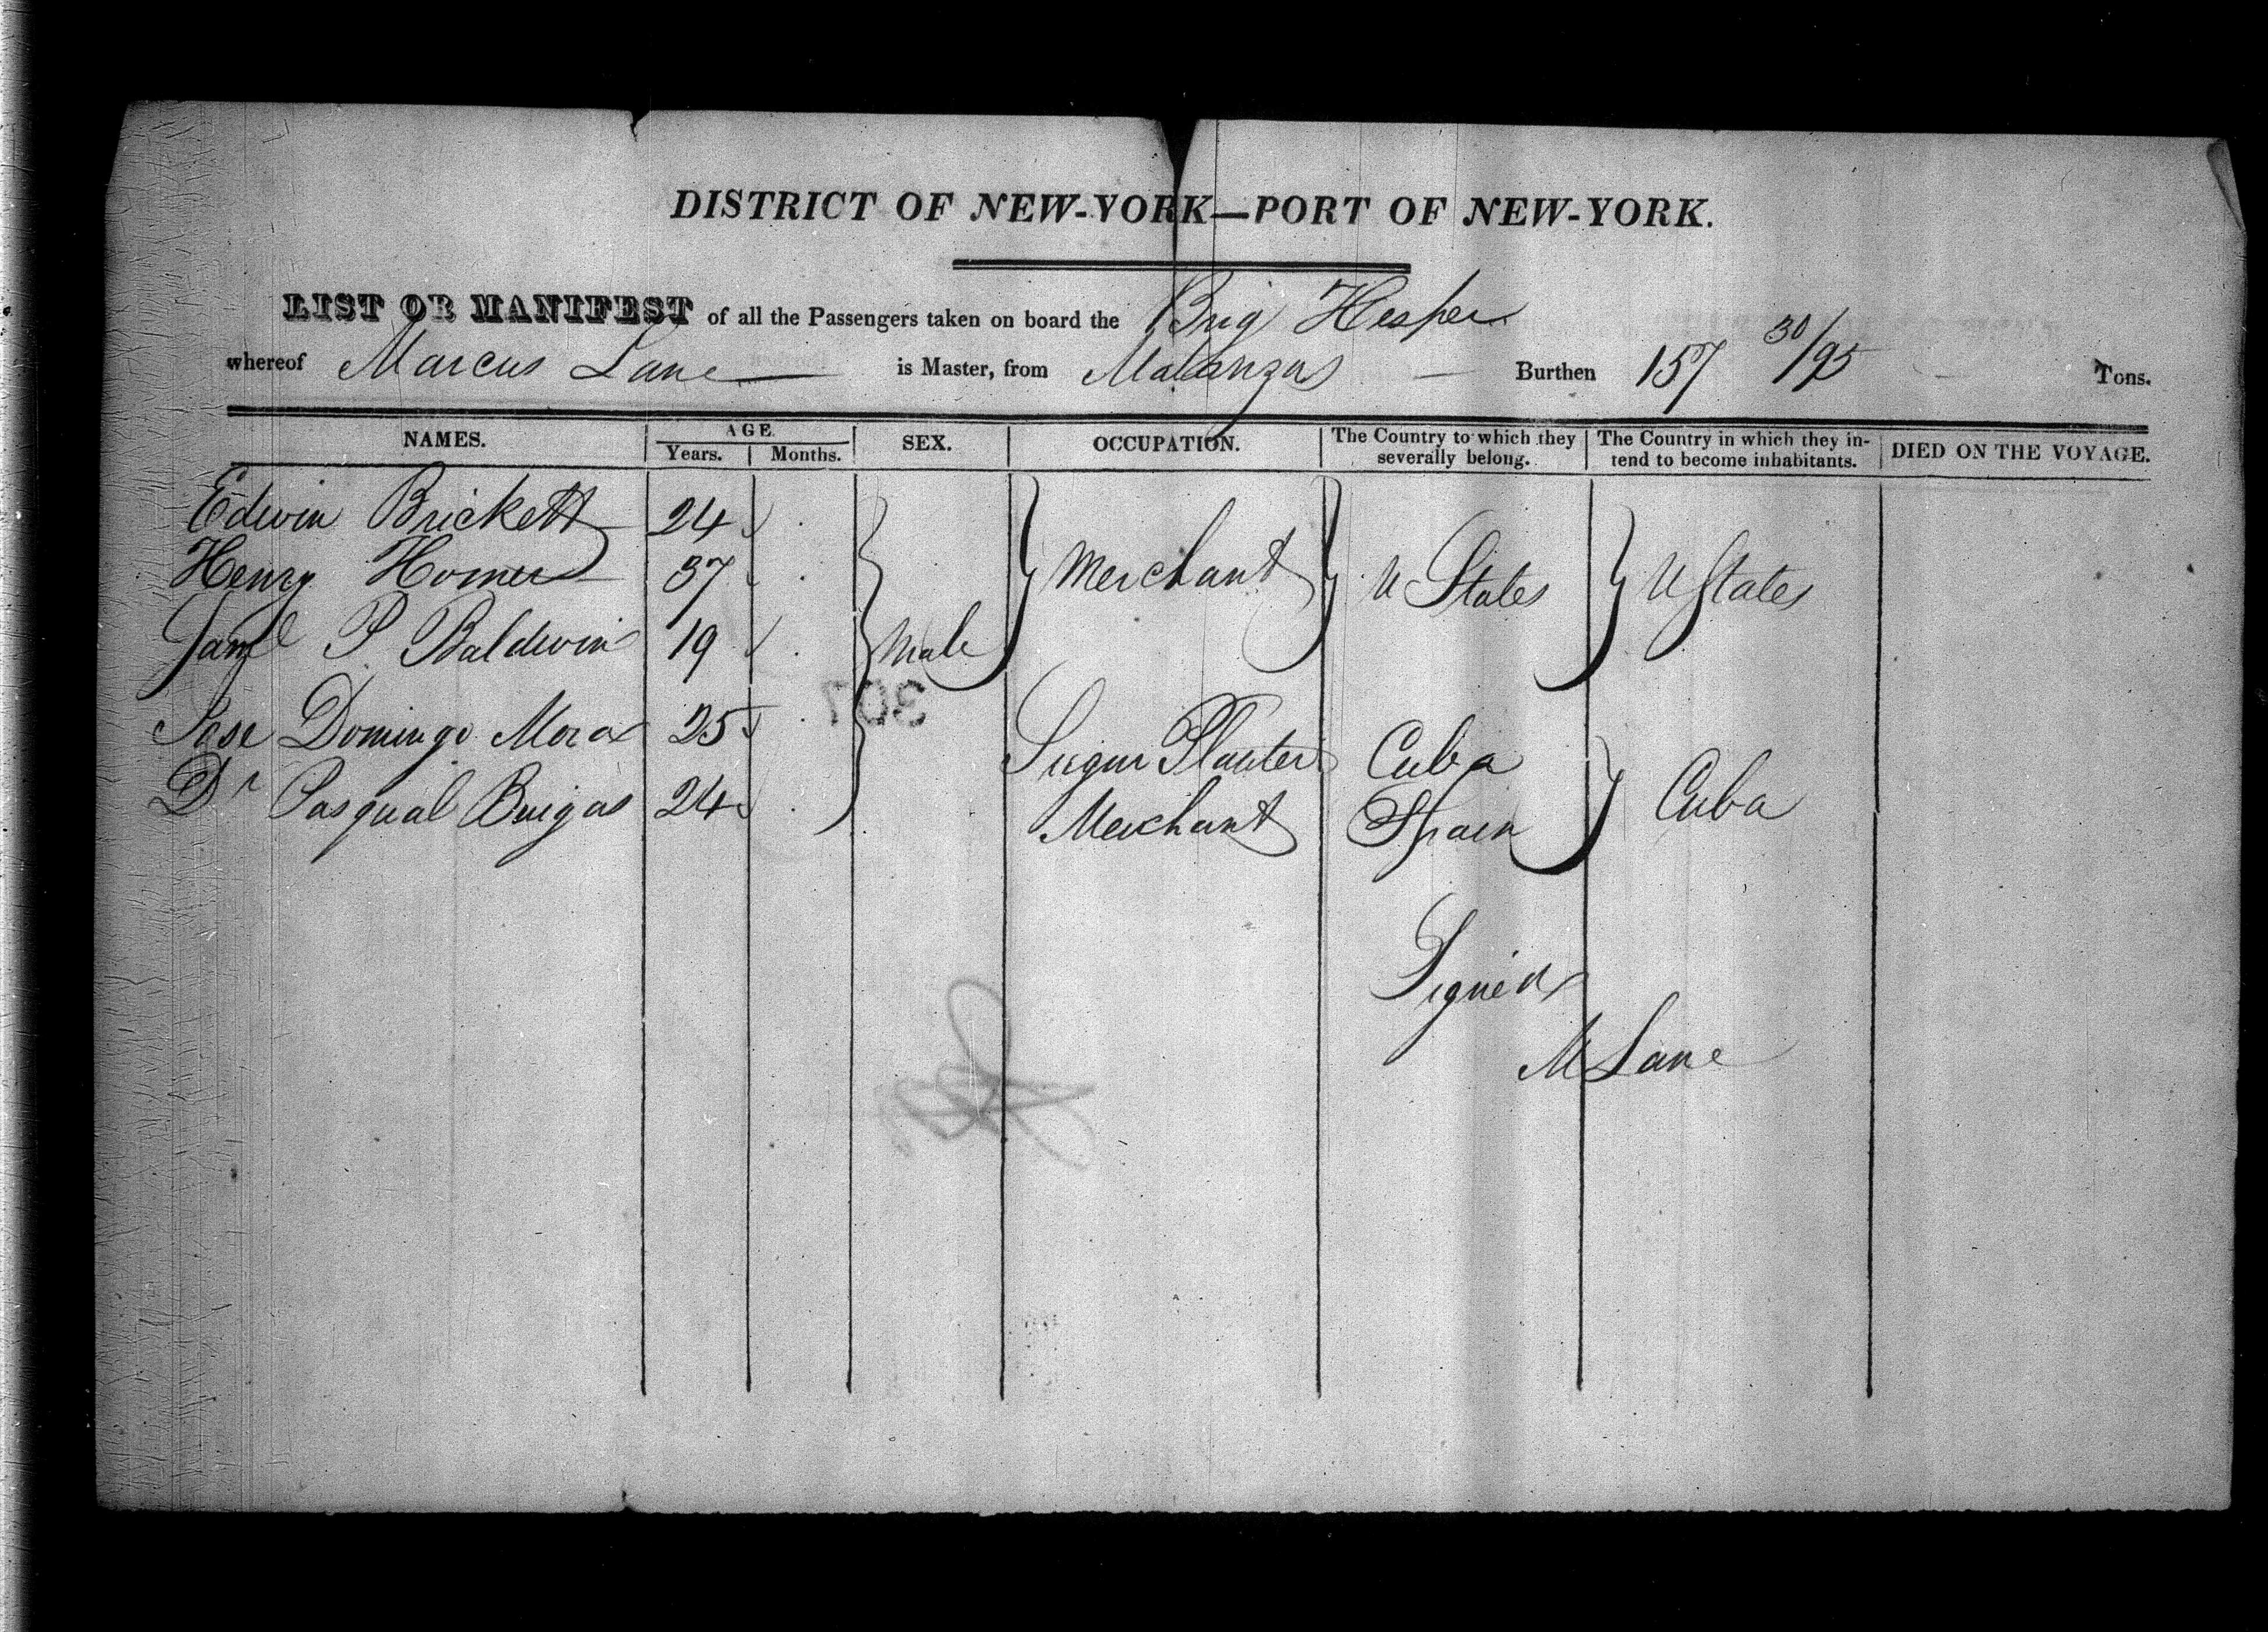 DISTRICT OF NEW-YORK—PORT OF NEW-YORK.
LIST OR MANIFEST of all the Passengers taken on board the Brig Hesper
whereof Marcus Lane is Master, from Matanzas Burthen 157 30/95 Tons.
NAMES. AGE. SEX. OCCUPATION. The Country to which they severally belong. The Country in which they intend to become inhabitants. DIED ON THE VOYAGE.
Years. Months.
Edwin Brickett 24
Henry Homer 37 Merchant U States U States
Saml P Baldwin 19 Male
Jose Domingo Mora 25 Sugar Planter Cuba
Dn Pasqual Buigas 24 Merchant Spain Cuba
307
Signed
M Lane